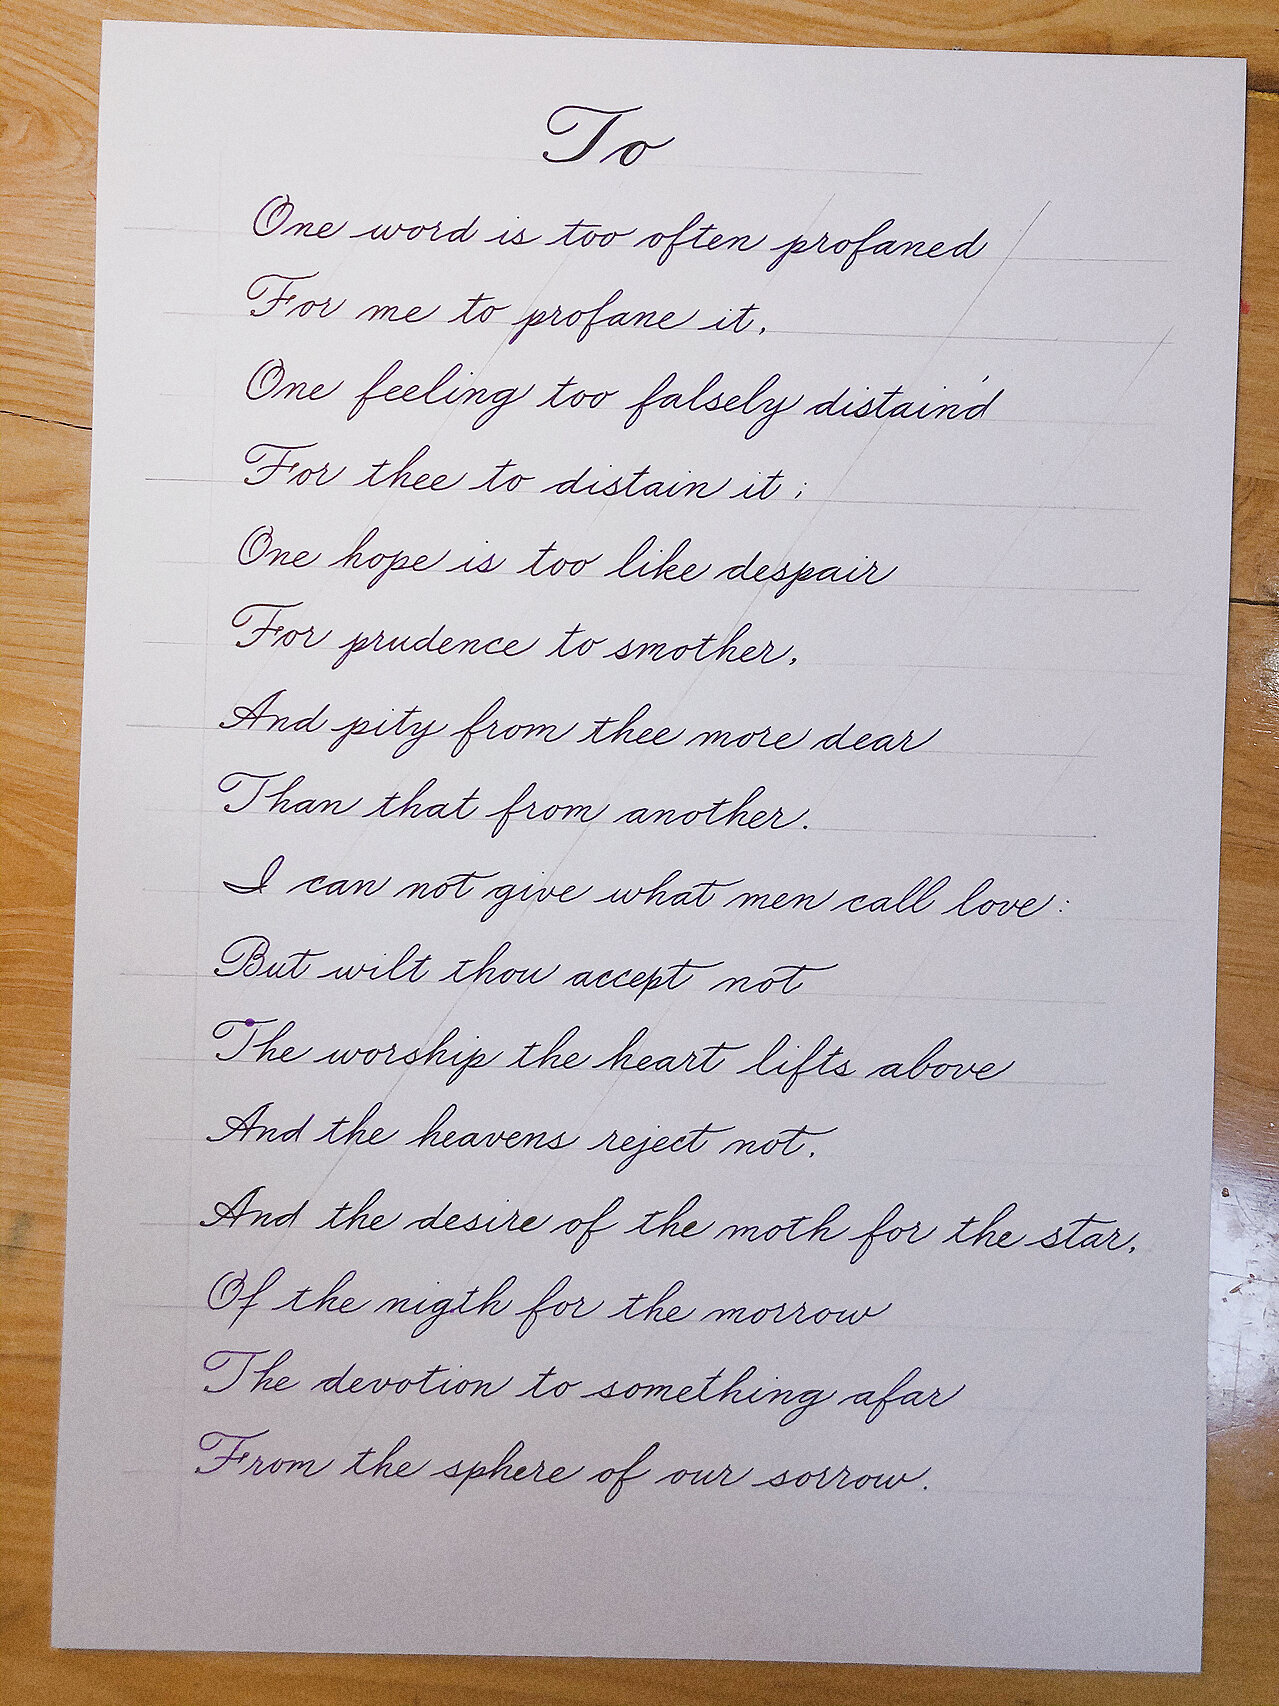 To
One word is too often profaned
For me to profane it,
One feeling too falsely distain'd
For thee to distain it;
One hope is too like despair
For prudence to smother,
And pity from thee more dear
Than that from another.
I can not give what men call love:
But wilt thou accept not
The worship the heart lifts above
And the heavens reject not.
And the desire of the moth for the star,
Of the nigth for the morrow
The devotion to something afar
From the sphere of our sorrow.